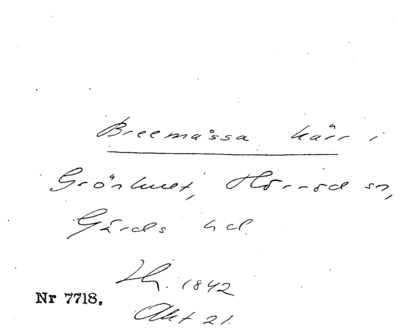 Breemåssa kärr i
Grönhult, Hörröd sn,
Gärds hd.
Lh. 1842
Nr 7718.
Akt 21.